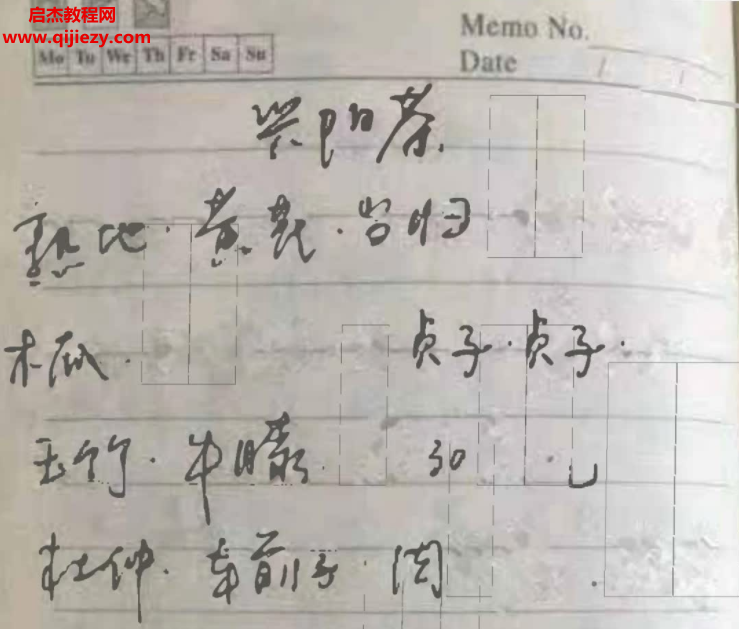 启杰教程网
www.qijiezy.com
Memo No.
Mo Tu We Th Fr Sa Su
Date / /
阳茶
熟地·黄芪·当归
木瓜· 贞子·贞子·
玉竹·牛膝 30
杜仲·车前子·肉